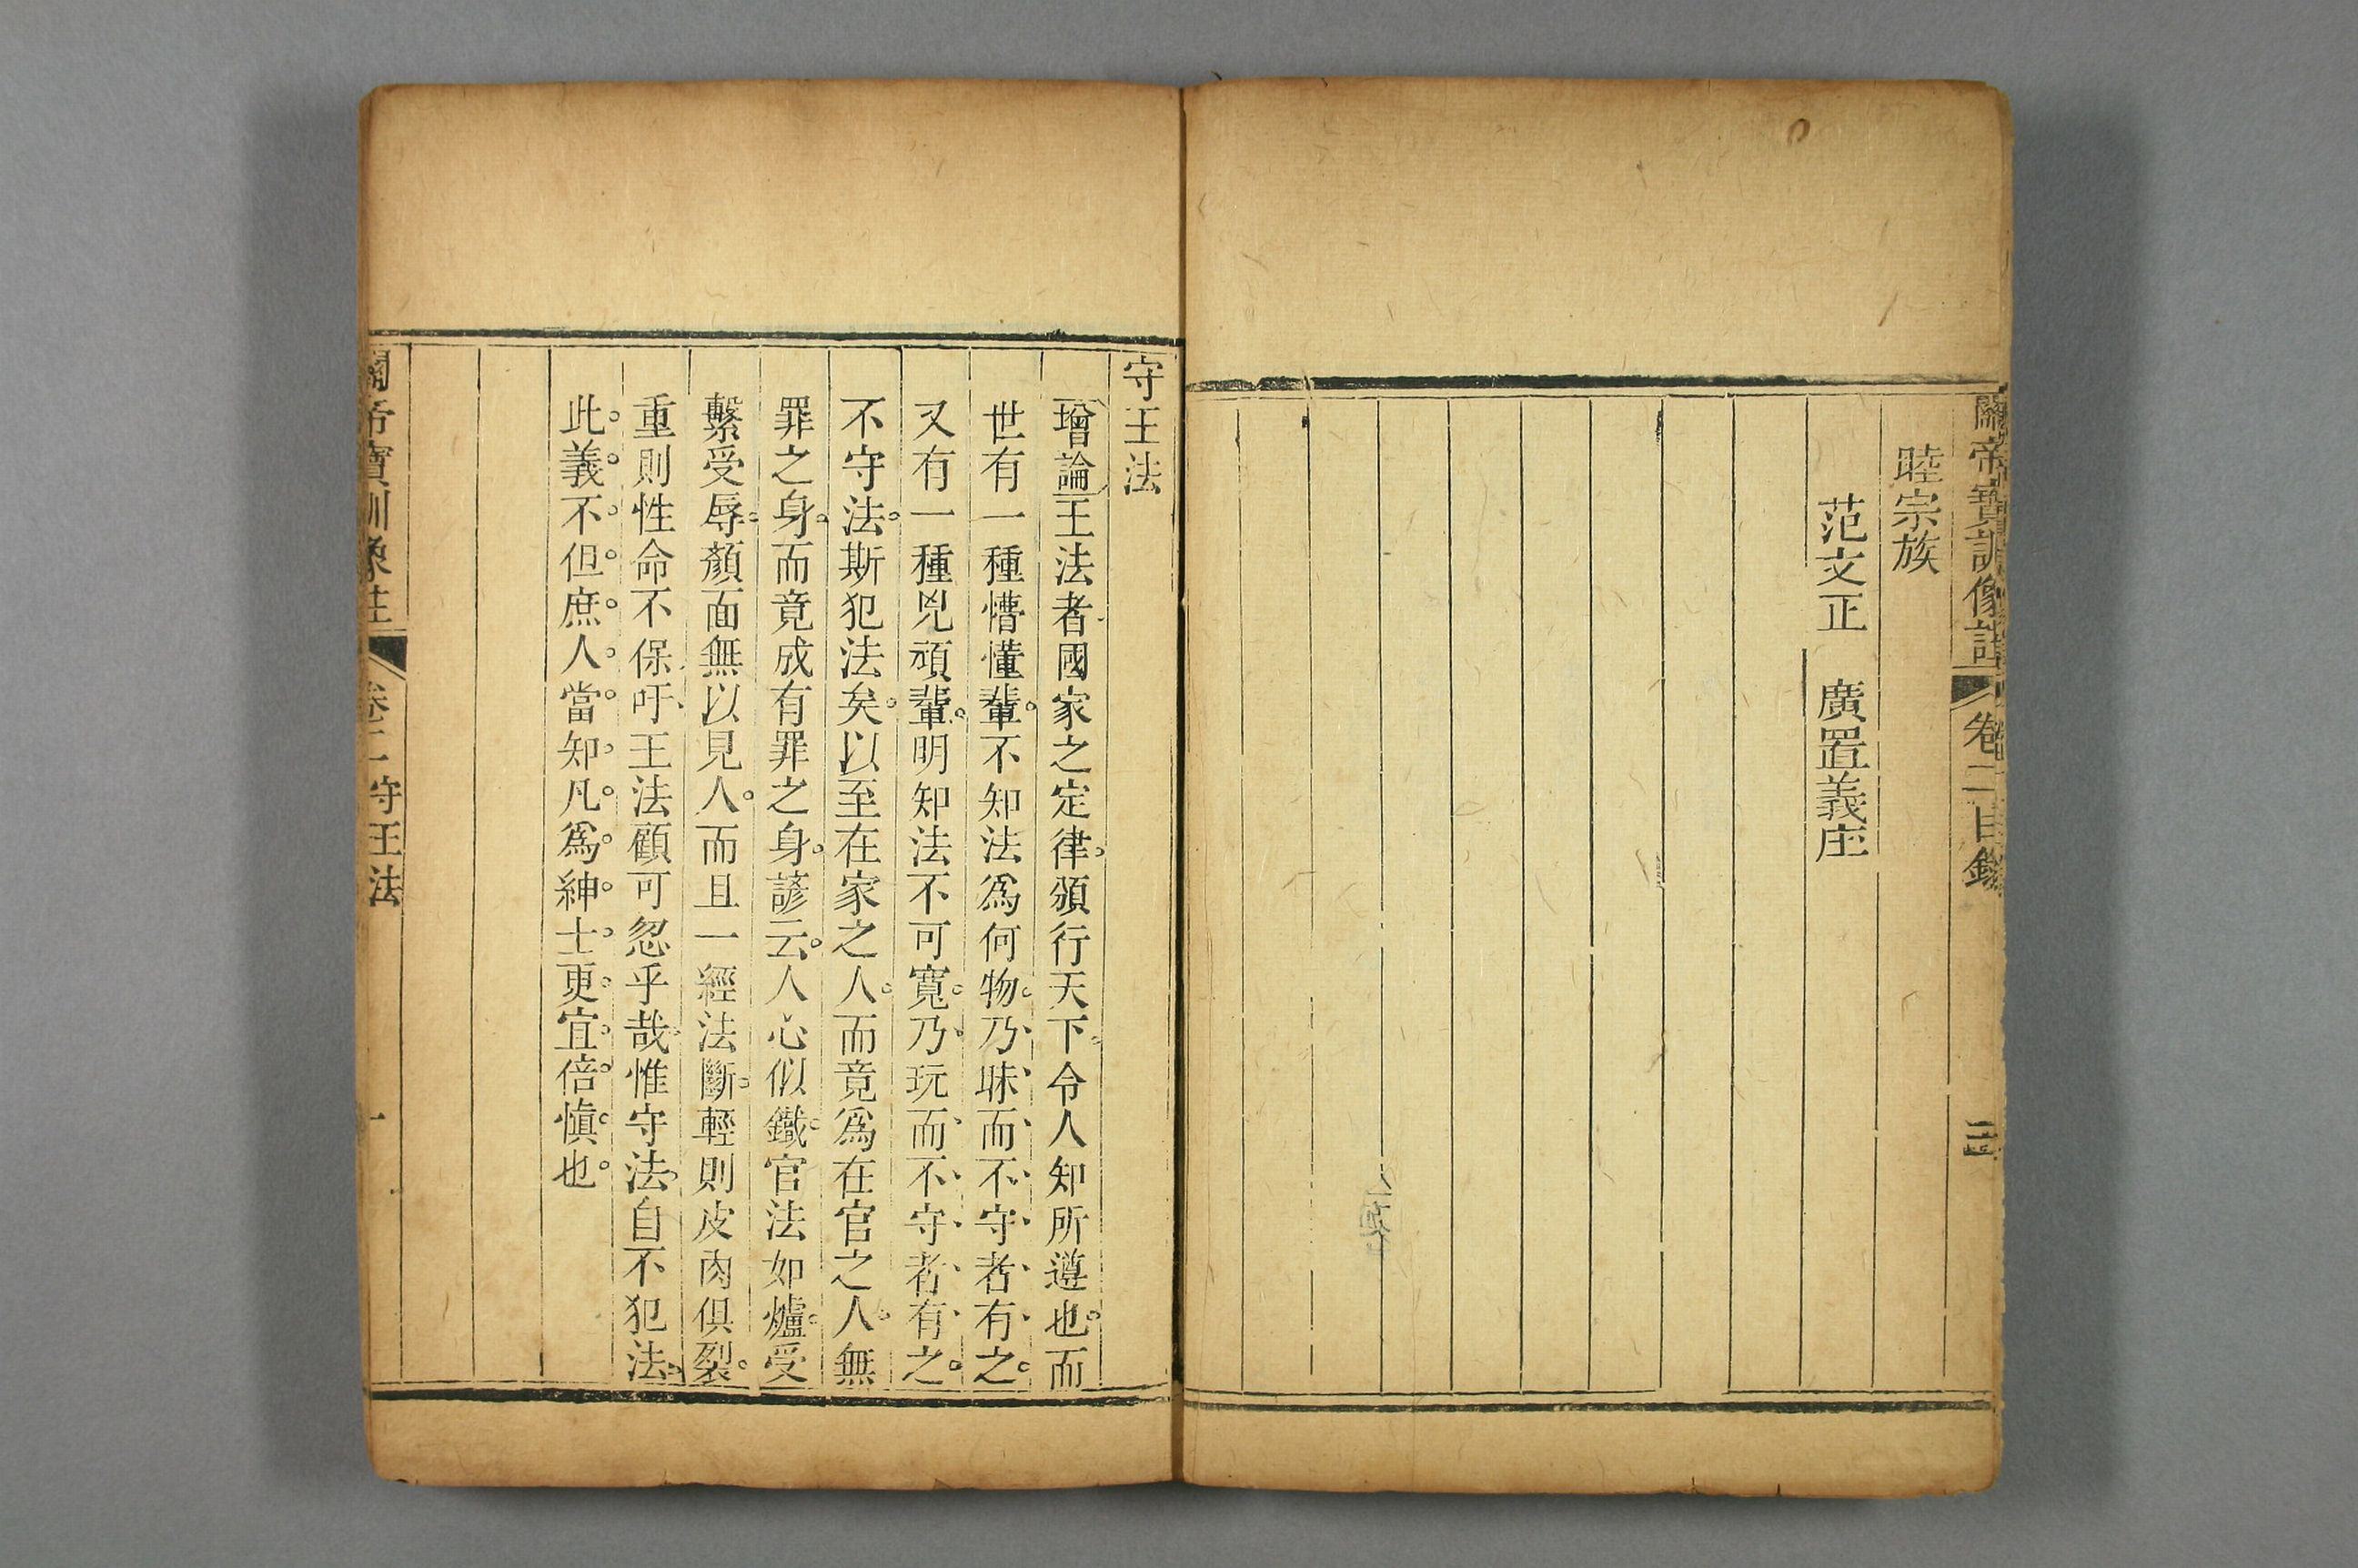 關帝寶訓像註 卷二目錄 三
睦宗族
范文正 廣置義庄
守王法
增論王法者國家之定律。頒行天下。令人知所遵也。而
世有一種懵懂輩。不知法爲何物。乃、昧、而、不、守、者、有、之。
又有一種兇頑輩。明知法不可寬。乃、玩、而、不、守、者、有、之。
不守法。斯犯法矣。以至在家之人。而竟爲在官之人。無
罪之身。而竟成有罪之身。諺云。人心似鐵。官法如爐。受
繫受辱。顏面無以見人。而且一經法斷。輕則皮肉俱裂。
重則性命不保。吁、王法顧可忽乎哉。惟守法。自不犯法。
此。義。不。但。庶。人。當。知。凡。爲。紳。士。更。宜。倍。慎。也。
關帝寶訓像註 卷二守王法 一